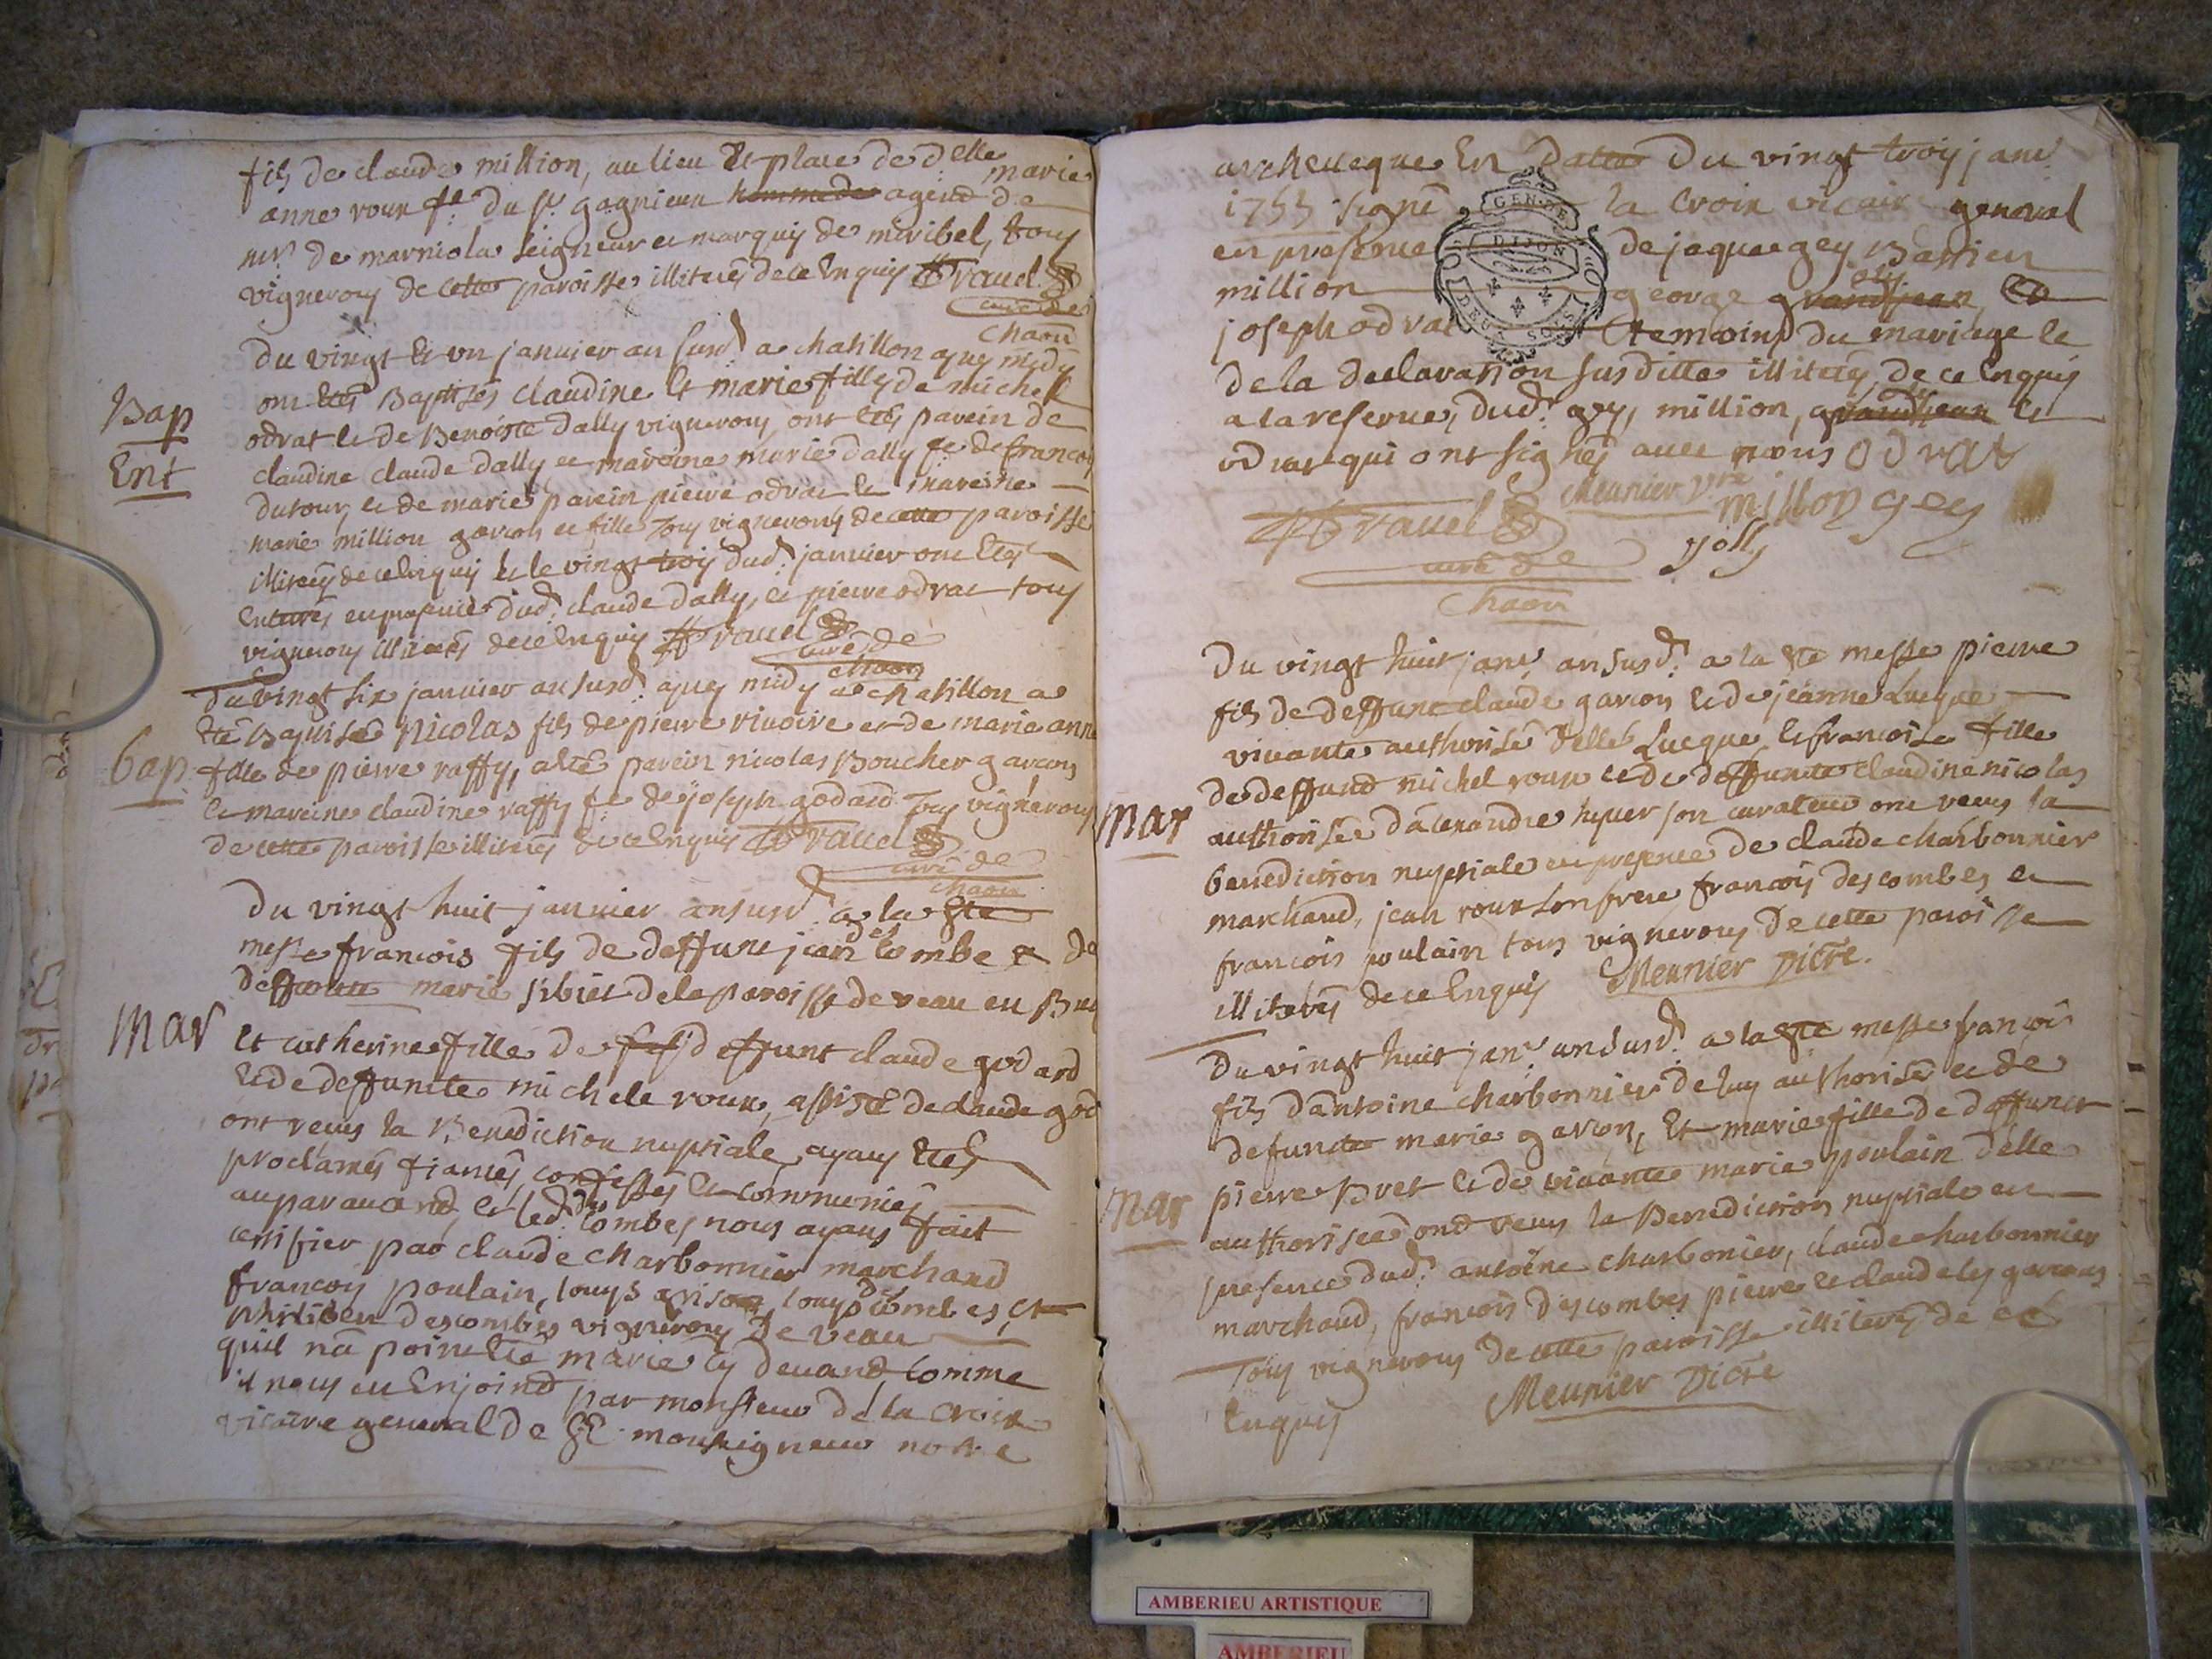 fils de claude million, au lieu Et place de delle marie
anne roux fe du sr gagnieur homme de agend de
mr de marniola seigneur et marquis de miribel, tous
vignerons de cette paroisse illiterés de ce Enquis ravel
curé de
chaou
Bap
Ent
Du vingt Et vn januier an susd. a chatillon apres midy
ont Etés Baptisés claudine Et marie filles de michel
odrat Et de Benoiste dally vignerons, ont Etés parein de
claudine claude dally et mareine marie dally fe de francois
dutour, et de marie parein pierre odrat Et mareine
marie million garcon et fille Tous vignerons de cette paroisse
illiterés de ce Enquis Et le vingt trois dud. januier ont Etés
Enterrés en presence dud. claude dally, et pierre odrat tous
vignerons illiterés de ce Enquis ravel
curé de
chaou
bap
Du vingt six januier an susd. apres midy a chatillon a
Eté Baptisé Nicolas fils de pierre riuoire et de marie anne
fille de pierre raffy, a Eté parein nicolas Boucher garcon
Et mareine claudine raffy fe de joseph godard Tous vignerons
de cette paroisse illiterés de ce Enquis ravel
curé de
chaou
Mar
Du vingt huit januier an susd. a la Ste
messe francois fils de deffunt jean des combe Et de
deffuncte marie sibiet de la paroisse de veau en Bugey
Et catherine fille de deffunt claude godard
Et de deffuncte michele roux, assisté de claude god
ont receus la Benediction nuptiale, ayans Etés
proclamés fiancés, confessés Et communiés
auparauand, et led. des combes nous ayans fait
certifier par claude charbonnier marchand
francois poulain, louys grison, louys des combes, Et
philiber descombes vignerons de veau
quil n'a point Eté marié cy deuand, comme
il nous est Enjoind par monsieur de la croix
vicaire general de SE monseigneur notre
archeueque En datte du vingt trois janr
1755 signé la croix vicaire general
GEN DE DIJON DEUX SOLS
en presence de jaque gey Bastien
million george grandjean joly Et
joseph odrat temoins du mariage Et
de la declaration susditte illiterés de ce Enquis
a la reserue, dud. gey, million, grandjean joly Et
odrat qui ont signés auec nous odrat
ravel Meunier vre millon gey
curé de joly
chaou
Mar
Du vingt huit janr an susd. a la Ste messe pierre
fils de deffunt claude garcon Et de jeanne Lucque
viuante authorisé d'elle Lucque, Et francoise fille
de deffund michel roux et de deffuncte claudine nicolas
authorisée d'alexandre huuer son curateur ont receus la
benediction nuptiale en presence de claude charbonnier
marchand, jean roux son frere francois des combes et
francois poulain tous vignerons de cette paroisse
illiterés de ce Enquis Meunier vicre.
Mar
Du vingt huit janr an susd. a la Ste messe francois
fils d'antoine charbonnier de luy authorisé et de
defuncte marie garcon, Et marie fille de deffunct
pierre Bret Et de viuante marie poulain d'elle
authorisée ond receus la Benediction nuptiale en
presence dud. antoine charbonier, claude charbonnier
marchand, francois descombes pierre Et claude les garcons
Tous vignerons de cette paroisse illiterés de ce
Enquis Meunier vicre
AMBERIEU ARTISTIQUE
AMBERIEU